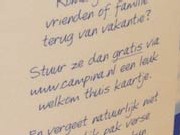 vrienden of familie
terug van vakantie?
Stuur ze dan gratis via
www.campina.nl een leuk
welkom thuis kaartje.
En vergeet natuurlijk niet
pak verse